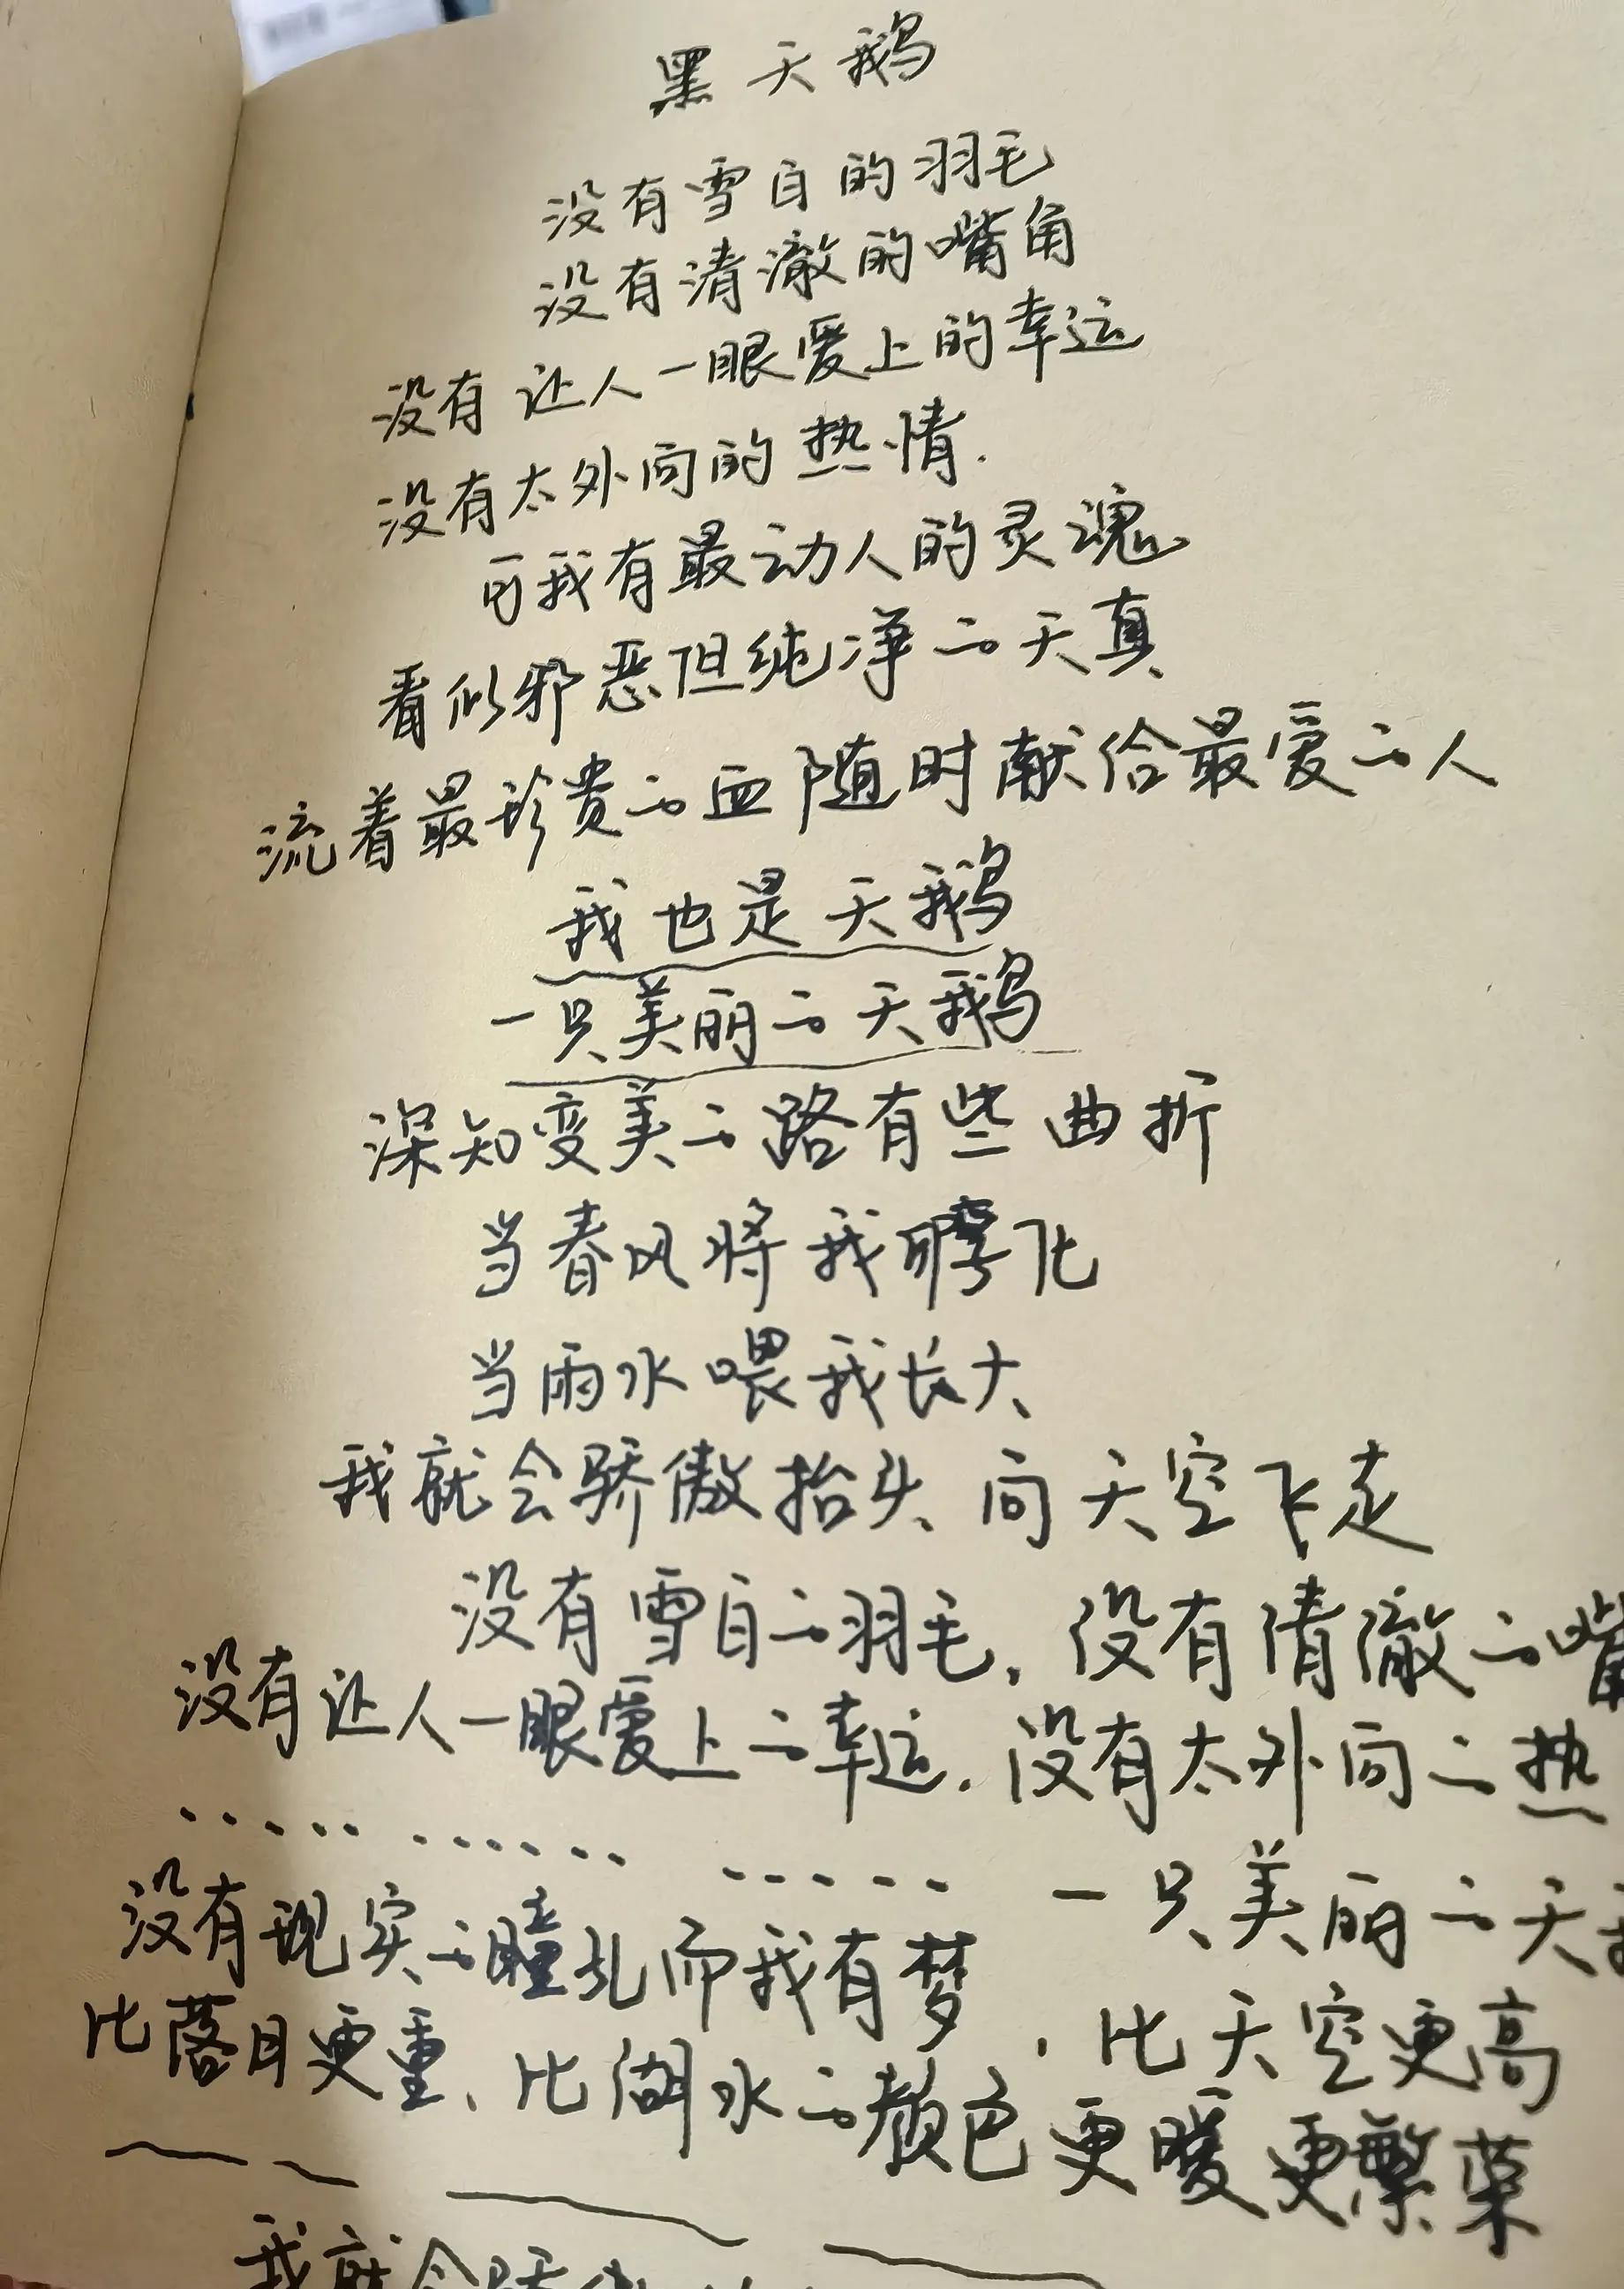 黑天鹅
没有雪白的羽毛
没有清澈的嘴角
没有让人一眼爱上的幸运
没有太外向的热情.
可我有最动人的灵魂
看似邪恶但纯净的天真
流着最珍贵的血随时献给最爱的人
我也是天鹅
一只美丽的天鹅
深知变美的路有些曲折
当春风将我孵化
当雨水喂我长大
我就会骄傲抬头、向天空飞走
没有雪白的羽毛, 没有清澈的嘴
没有让人一眼爱上的幸运. 没有太外向的热
..... ...... ..... 一只美丽的天
没有现实的瞳孔而我有梦, 比天空更高
比落日更重、比湖水的颜色更暖更繁荣
我就会骄傲